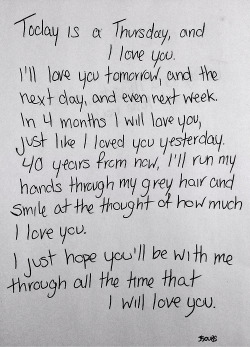 Today is a Thursday, and
I love you.
I'll love you tomorrow, and the
next day, and even next week.
In 4 months I will love you,
just like I loved you yesterday.
40 years from now, I'll run my
hands through my grey hair and
smile at the thought of how much
I love you.
I just hope you'll be with me
through all the time that
I will love you.